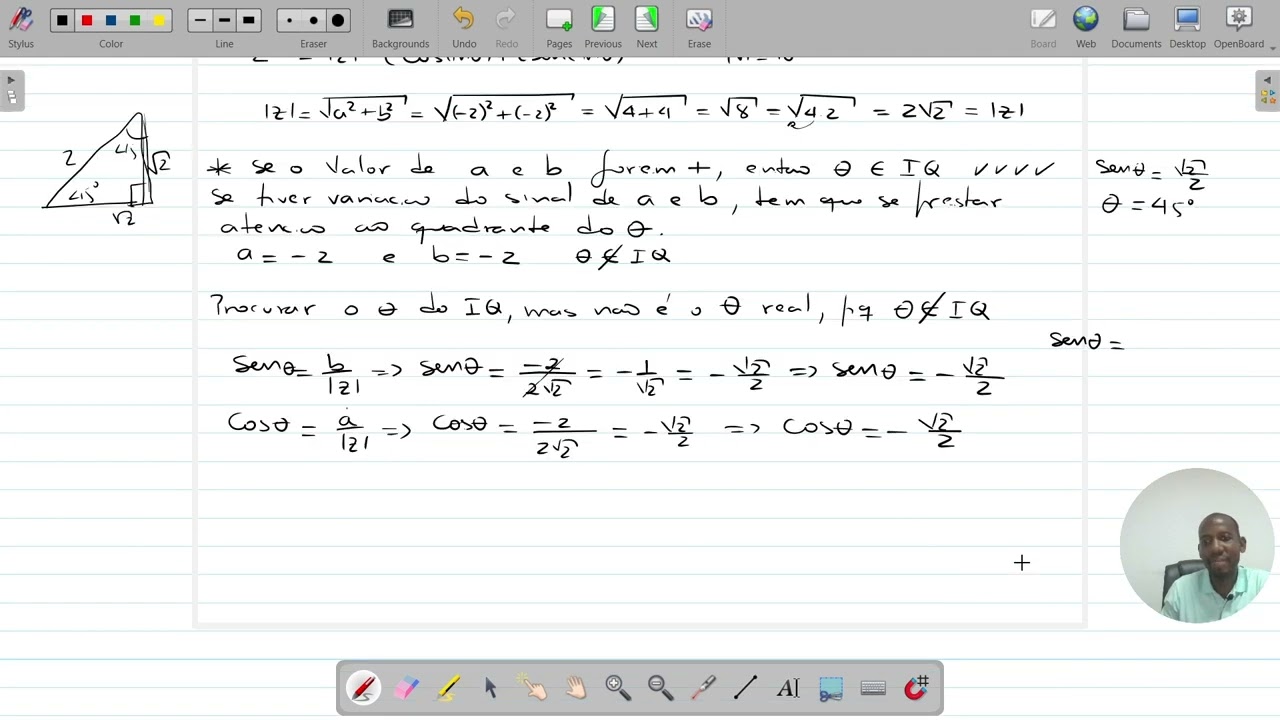 Stylus Color Line Eraser Backgrounds Undo Redo Pages Previous Next Erase Board Web Documents Desktop OpenBoard
|z| = √a²+b² = √(-2)²+(-2)² = √4+4 = √8 = √4.2 = 2√2 = |z|
2 45 √2
45° √2
* se o valor de a e b forem +, entao θ ∈ IQ ✓✓✓✓
se tiver variacao do sinal de a e b, tem que se prestar
atencao ao quadrante do θ.
a = -2 e b = -2 θ ∉ IQ
senθ = √2/2
θ = 45°
Procurar o θ do IQ, mas não é o θ real, pq θ ∉ IQ
senθ =
senθ = b/|z| => senθ = -2/2√2 = -1/√2 = -√2/2 => senθ = -√2/2
cosθ = a/|z| => cosθ = -2/2√2 = -√2/2 => cosθ = -√2/2